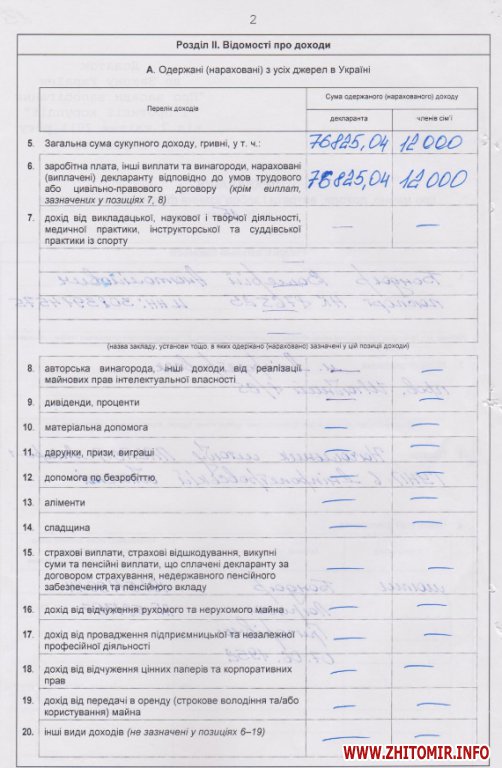 2
Розділ II. Відомості про доходи
А. Одержані (нараховані) з усіх джерел в Україні
Перелік доходів
Сума одержаного (нарахованого) доходу
декларанта
членів сім'ї
5. Загальна сума сукупного доходу, гривні, у т. ч.: 76825,04 12000
6. заробітна плата, інші виплати та винагороди, нараховані
(виплачені) декларанту відповідно до умов трудового
або цивільно-правового договору (крім виплат, 76825,04 12000
зазначених у позиціях 7, 8)
7. дохід від викладацької, наукової і творчої діяльності,
медичної практики, інструкторської та суддівської — —
практики із спорту
(назва закладу, установи тощо, в яких одержано (нараховано) зазначені у цій позиції доходи)
8. авторська винагорода, інші доходи від реалізації
майнових прав інтелектуальної власності — —
9. дивіденди, проценти — —
10. матеріальна допомога — —
11. дарунки, призи, виграші — —
12. допомога по безробіттю — —
13. аліменти — —
14. спадщина — —
15. страхові виплати, страхові відшкодування, викупні
суми та пенсійні виплати, що сплачені декларанту за
договором страхування, недержавного пенсійного — —
забезпечення та пенсійного вкладу
16. дохід від відчуження рухомого та нерухомого майна — —
17. дохід від провадження підприємницької та незалежної
професійної діяльності — —
18. дохід від відчуження цінних паперів та корпоративних — —
прав
19. дохід від передачі в оренду (строкове володіння та/або
користування) майна — —
20. інші види доходів (не зазначені у позиціях 6–19) — —
WWW.ZHITOMIR.INFO